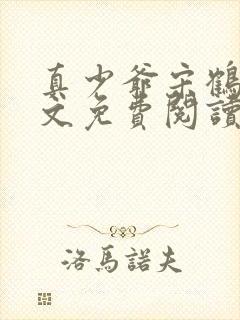 真少爺宋鶴
文免費閱讀
洛馬諾夫